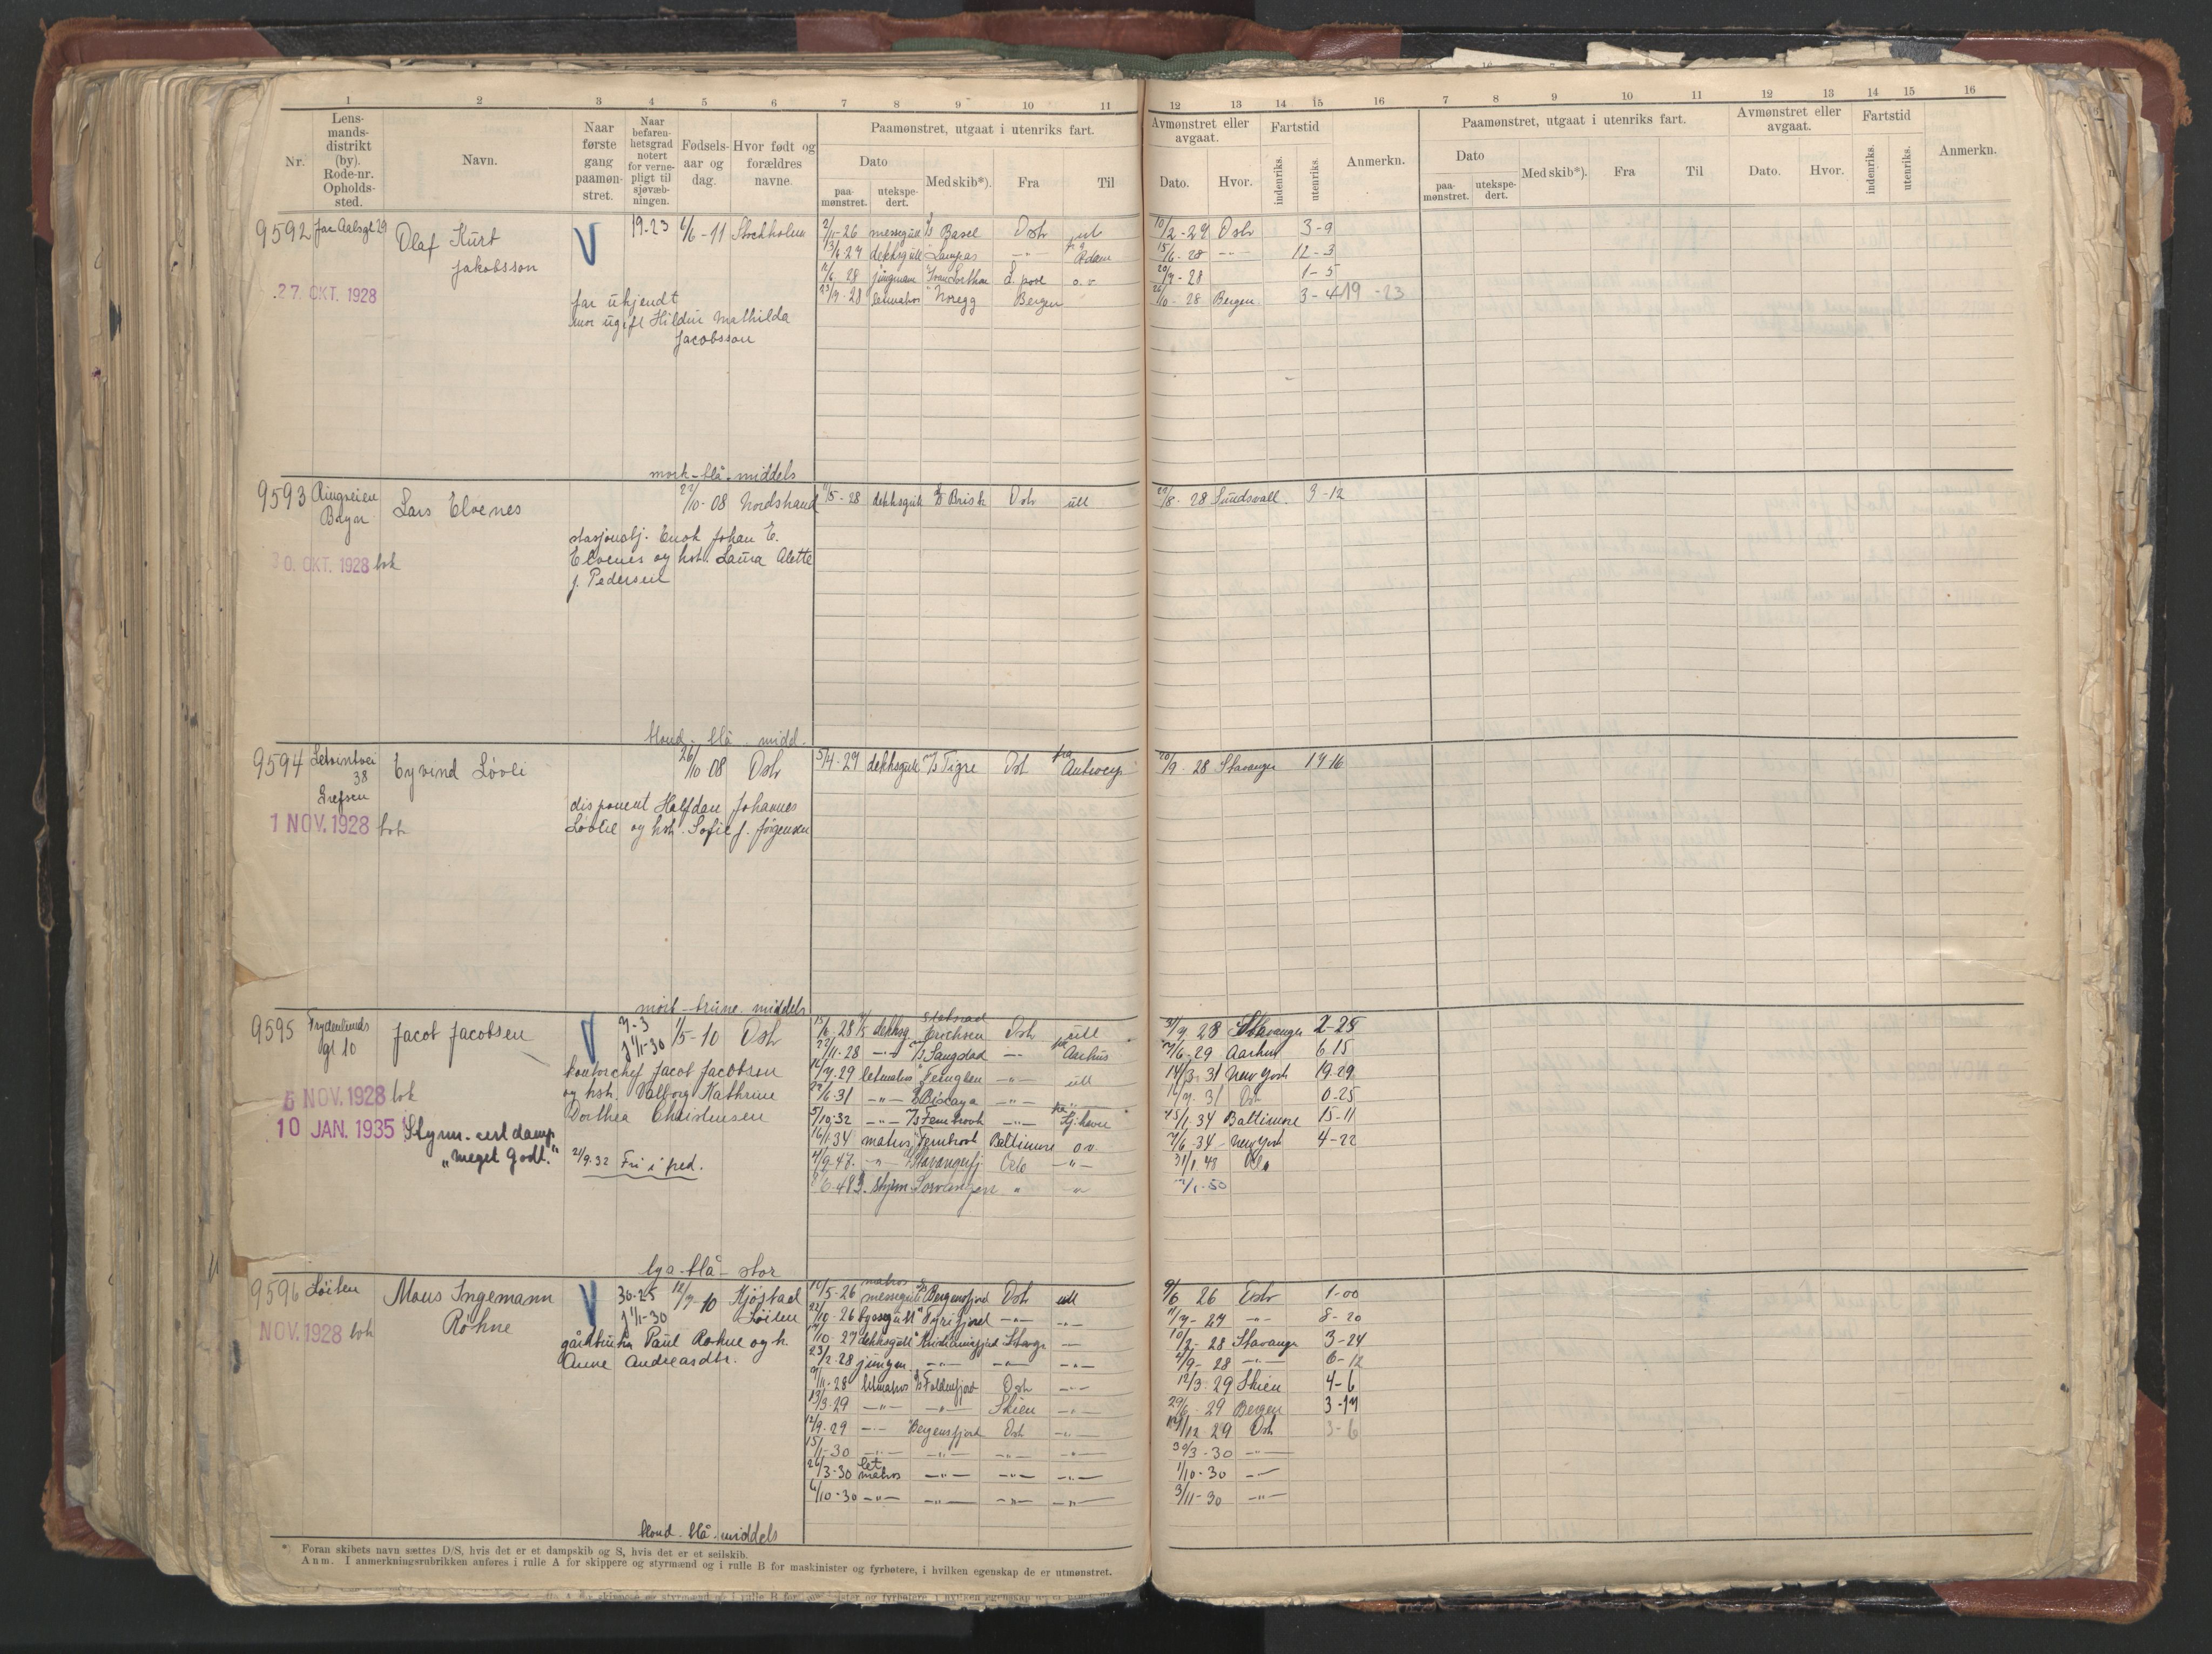 1 2 3 4 5 6 7 8 9 10 11 12 13 14 15 16 7 8 9 10 11 12 13 14 15 16
Nr.
Lens-
mands-
distrikt
(by).
Rode-nr.
Opholds-
sted.
Navn.
Naar
første
gang
paamøn-
stret.
Naar
befaren-
hetsgrad
notert
for verne-
pligt til
sjøvæb-
ningen.
Fødsels-
aar og
dag.
Hvor født og
forældres
navne.
Paamønstret, utgaat i utenriks fart.
Dato
paa-
mønstret.
utekspe-
dert.
Med skib*).
Fra
Til
Avmønstret eller
avgaat.
Dato.
Hvor.
Fartstid
indenriks.
utenriks.
Anmerkn.
Paamønstret, utgaat i utenriks fart.
Dato
paa-
mønstret.
utekspe-
dert.
Med skib*).
Fra
Til
Avmønstret eller
avgaat.
Dato.
Hvor.
Fartstid
indenriks.
utenriks.
Anmerkn.
9592 Olaf Kurt 19-23 6/6-11 Stockholm
Jakobsson
27. OKT. 1928
far ukjendt
mor ugift Hildur Mathilda
Jacobsson
2/11-26 messegut Basel Oslo utl 10/2-27 Oslo 3-9
dekksgutt Lampas -"- fra Rdam 15/6-28 -"- 12-3
jungman o.v. 1-5
23/7-28 letmatros Noregg Bergen 10-28 Bergen 3-4 19-23
mørk-blå-middels
9593 Ringveien Lars Elvenes 27/10-08 Nordstrand
Bryn
30. OKT. 1928 lok
stasjonsbtj. Enok Johan E.
Elvenes og hst. Laura Alette
f. Pedersen
5-28 dekksgutt Brisk Oslo utl 29/8-28 Sundsvall 3-12
blond-blå-midd.
9594 38 Eyvind Løvli 26/10 08 Oslo
Grefsen
1 NOV. 1928 lok
disponent Halfdan Johannes
Løvlie og hst. Sofie f. Jørgensen
5/4-27 dekksgutt M/S Tigre Osl fra Antwerp 20/9-28 Stavanger 17 16
mørk-brune-middels
9595 Frydenlunds Jacob Jacobsen 7-3 1/5-10 Oslo
gt 10 j 1/1-30
5 NOV. 1928 lok
10 JAN. 1935 Styrm. cert damp
"meget godt."
kontorchef Jacob Jacobsen
og hst. Valborg Kathrine
Dorthea Christensen
2/9.32 Fri i fred.
15/6-28 dekksg Statsraad Erichsen Oslo utl 31/7 28 Stavanger 2-25
22/11-28 -"- Sangstad -"- fra Aarhus 7/6-29 Aarhus 6 15
letmatros Fernglen -"- utl 14/3-31 New York 19-29
22/6-31 -"- Biscaya -"- 31 Osl 0-25
5/10.32 -"- M/S Fernbrook -"- fra Kj.havn 25/1 34 Baltimore 15-11
16/1 34 matros Fernbrook Baltimore o.v. 7/6-34 New York 4-22
4/9-47 -"- Stavangerfj. Oslo -"- 31/1 48 Oslo
6.48 styrm. " " 7/1-50
lys-blå-stor
9596 Løiten Maus Ingemann 30-25 12/7-10 Kjøstad
Rohne j 1/1-30 Løiten
NOV. 1928 lok
gårdbruker Paul Rohne og h.
Anne Andreasdtr.
matros
5-26 messegutt Bergensfjord Oslo utl 9/6 26 Oslo 1-00
22/10-26 byssegutt " Tyrifjord -"- -"- 7-27 -"- 8-20
10-27 dekksgutt " Kristianiafjord Stavgr -"- 10/2-28 Stavangr 3-24
23/2-28 jungm. -"- -"- -"- 4/9-28 -"- 6-12
7/11-28 letmatros Foldenfjord Oslo -"- 12/3-29 Skien 4-6
13/3.29 -"- -"- Skien -"- 29/6-29 Bergen 3-17
12/9-29 -"- Bergensfjord Oslo -"- 12 29 Osl 3-6
15/1-30 -"- -"- -"- -"- 30/3-30 -"-
26/3-30 let matros -"- -"- -"- 1/10-30 -"-
6/10-30 -"- -"- -"- -"- 3/11-30 -"-
blond-blå-middels
*) Foran skibets navn sættes D/S, hvis det er et dampskib og S, hvis det er et seilskib.
Anm. I anmerkningsrubrikken anføres i rulle A for skippere og styrmænd og i rulle B for maskinister og fyrbøtere, i hvilken egenskap de er utmønstret.